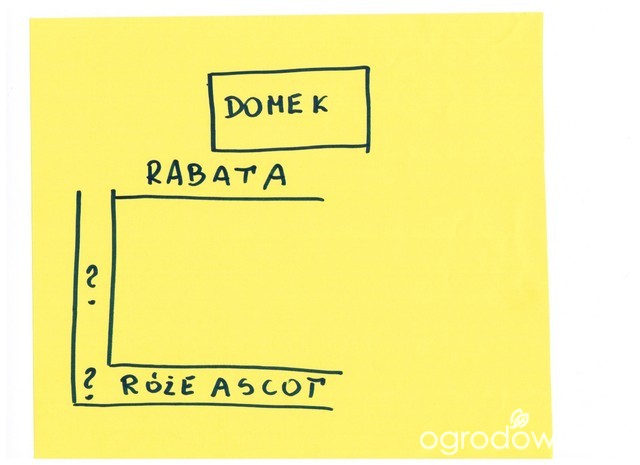 DOMEK
RABATA
?
? RÓŻE ASCOT
ogrodow